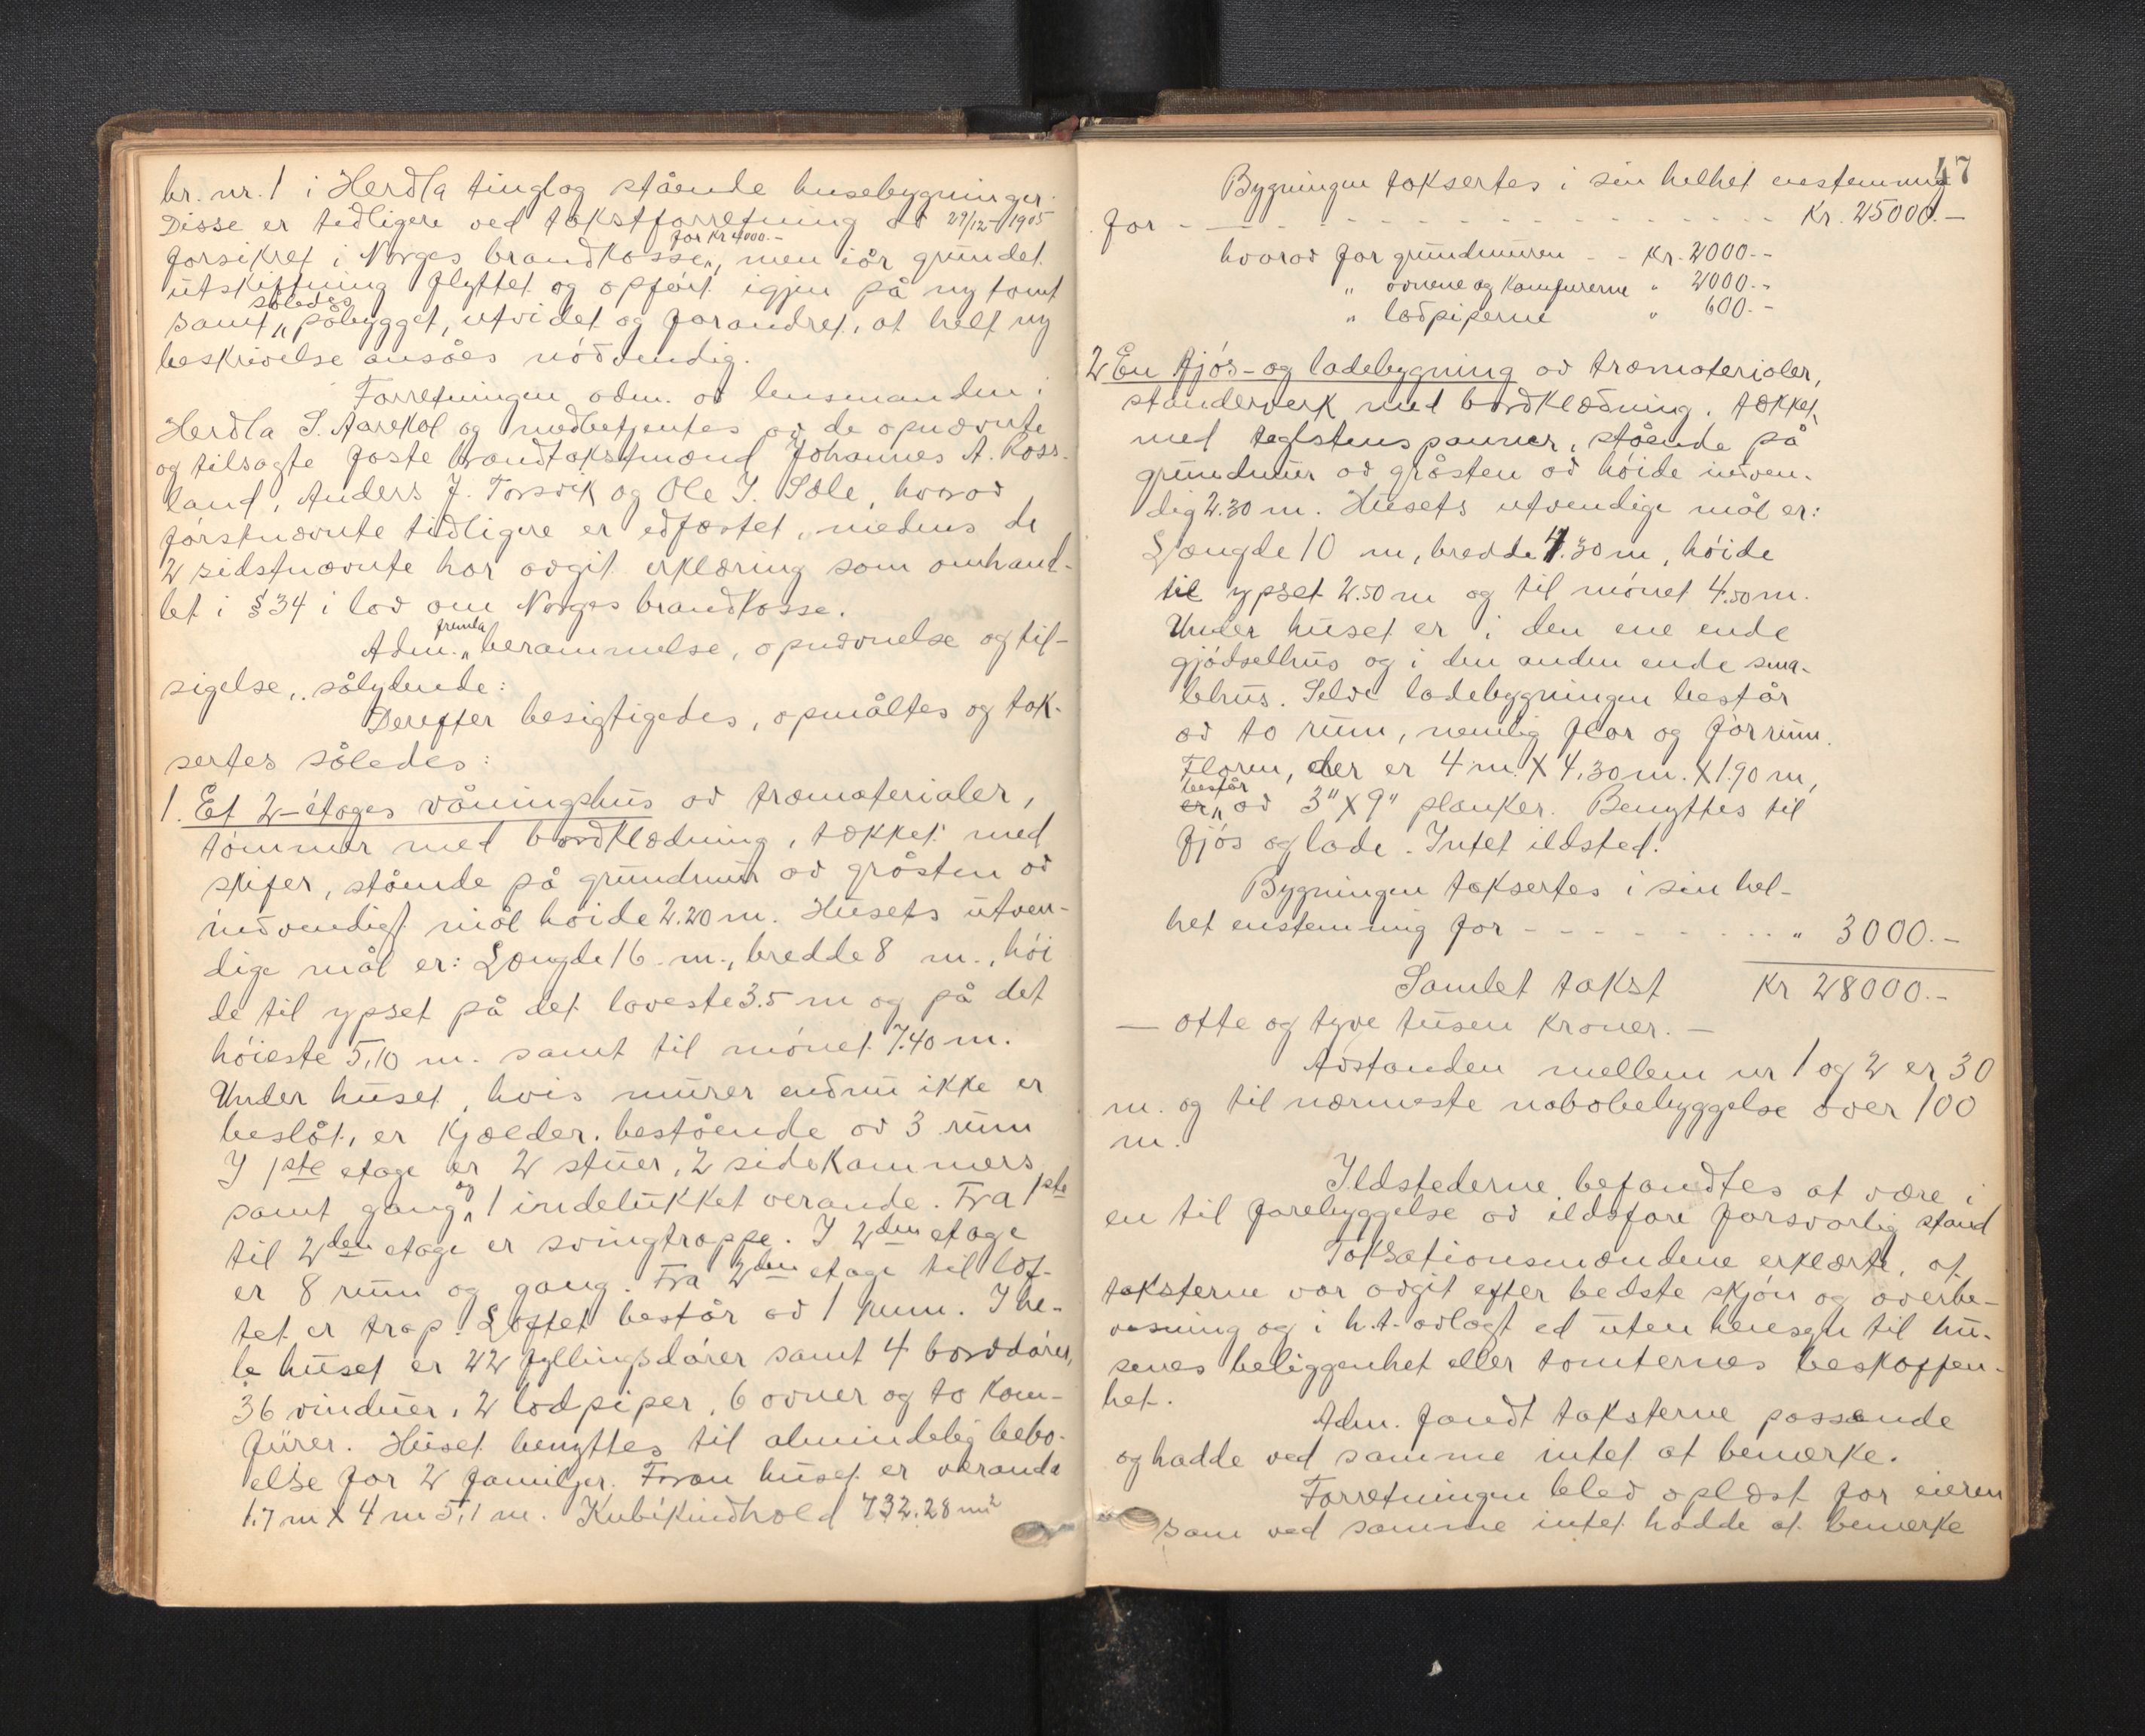 br. nr. 1 i Herdla tinglag stående husebygninger.
Disse er tidligere ved takstforretning av 27/12-1905
forsikret i Norges brandkasse for kr 4000.-, men iår grundet
utskiftning flyttet og opført igjen på ny tomt
samt således påbygget, utvidet og forandret, at helt ny
beskrivelse ansåes nødvendig.
Forretningen adm. av lensmanden i
Herdla S. Aarekol og medbetjentes av de opnævnte
og tilsagte faste brandtakstmænd Johannes A. Ross-
land, Anders J. Torsvik og Ole I. Sæle, hvorav
førstnævnte tidligere er edfæstet, medens de
2 sidstnævnte har avgit erklæring som omhand-
let i § 34 i lov om Norges brandkasse.
Adm. fremla berammelse, opnævnelse og til-
sigelse, sålydende:
Derefter besigtigedes, opmåltes og tak-
sertes således:
1. Et 2-etages våningshus av træmaterialer,
tømmer med bordklædning, tækket med
skifer, stående på grundmur av gråsten av
indvendigt mål høide 2.20 m. Husets utven-
dige mål er: Længde 16 m., bredde 8 m., høi
de til ypset på det laveste 3.5 m og på det
høieste 5,10 m. samt til mønet 7.40 m.
Under huset, hvis murer endnu ikke er
beslåt, er kjælder, bestående av 3 rum
I 1ste etage er 2 stuer, 2 sidekammers
samt gang og 1 indelukket verande. Fra 1ste
til 2den etage er svingtrappe. I 2den etage
er 8 rum og gang. Fra 2den etage til lof-
tet er trap. Loftet består av 1 rum. I he-
le huset er 22 fyllingsdører samt 4 borddører,
36 vinduer, 2 lodpiper, 6 ovner og to kom-
fürer. Huset benyttes til almindelig bebo-
else for 2 familjer. Foran huset er veranda
1.7 m X 4 m 5,1 m. Kubikindhold 732.28 m2
47
Bygningen taksertes i sin helhet enstemmig
for - - - - - - - - - - - Kr. 25000.-
hvorav for grundmuren - - Kr. 2000.-
" ovnene og komfurerne " 2000.-
" lodpiperne " 600.-
2 En fjøs- og ladebygning av træmaterialer,
standerverk med bordklædning, tækket
med teglstenspanner, stående på
grundmur av gråsten av høide indven-
dig 2.30 m. Husets utvendige mål er:
Længde 10 m, bredde 4.30 m, høide
til ypset 2.50 m og til mønet 4.50 m.
Under huset er i den ene ende
gjødselhus og i den anden ende sma-
lehus. Selve ladebygningen består
av to rum, nemlig flor og forrum.
Floren, der er 4 m. X 4,30 m. X 1.90 m,
er består av 3" X 9" planker. Benyttes til
fjøs og lade. Intet ildsted.
Bygningen taksertes i sin hel-
het enstemmig for - - - - - - - - " 3000.-
Samlet takst Kr 28000.-
- otte og tyve tusen kroner. -
Avstanden mellem nr 1 og 2 er 30
m. og til nærmeste nabobebyggelse over 100
m.
Ildstederne befandtes at være i
en til forebyggelse av ildsfare forsvarlig stand
Taksationsmændene erklærte, at
taksterne var avgit efter bedste skjøn og overbe-
visning og i h.t. avlagt ed uten hensyn til hu-
senes beliggenhet eller tomternes beskaffen-
het.
Adm. fandt taksterne passende
og hadde ved samme intet at bemerke.
Forretningen blev oplæst for eieren
som ved samme intet hadde at bemerke